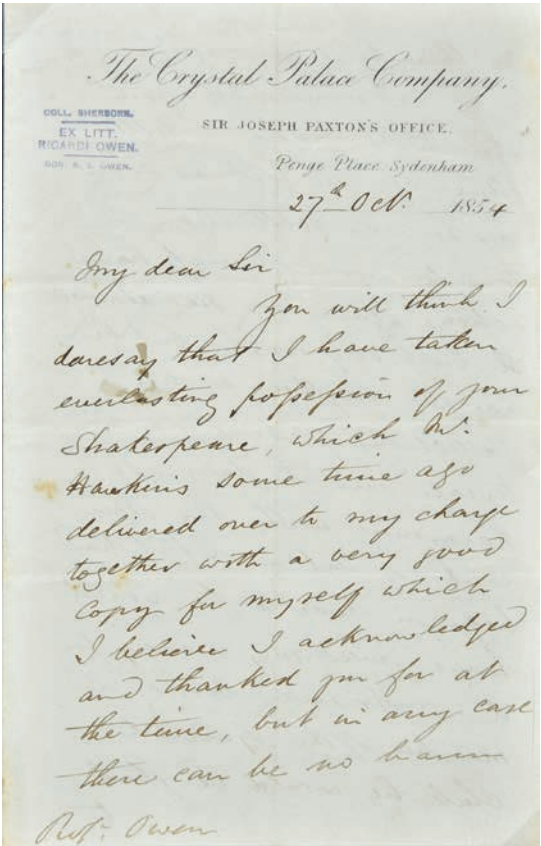 The Crystal Palace Company.
COLL. SHERBORN.
EX LITT.
RICARDI OWEN.
DON. R. S. OWEN.
SIR JOSEPH PAXTON'S OFFICE.
Penge Place Sydenham
27th Oct. 1854
My dear Sir
You will think I
daresay that I have taken
everlasting possession of your
Shakespeare, which Mr.
Hawkins some time ago
delivered over to my charge
together with a very good
copy for myself which
I believe I acknowledged
and thanked you for at
the time, but in any case
there can be no harm
Profr. Owen